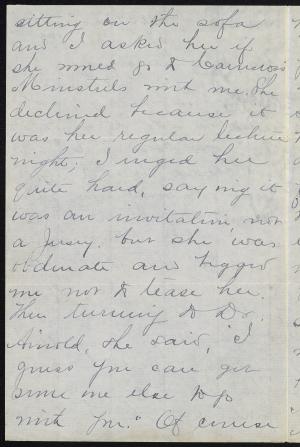 sitting on the sofa
and I asked her if
she would go to Carncross
Minstrels with me. She
declined because it
was her regular lecture
night; I urged her
quite hard, saying it
was an invitation, not
a , but she was
obdurate and begged
me not to tease her.
Then turning to Dr.
Arnold, she said, "I
guess you can get
some one else to go
with you." Of course